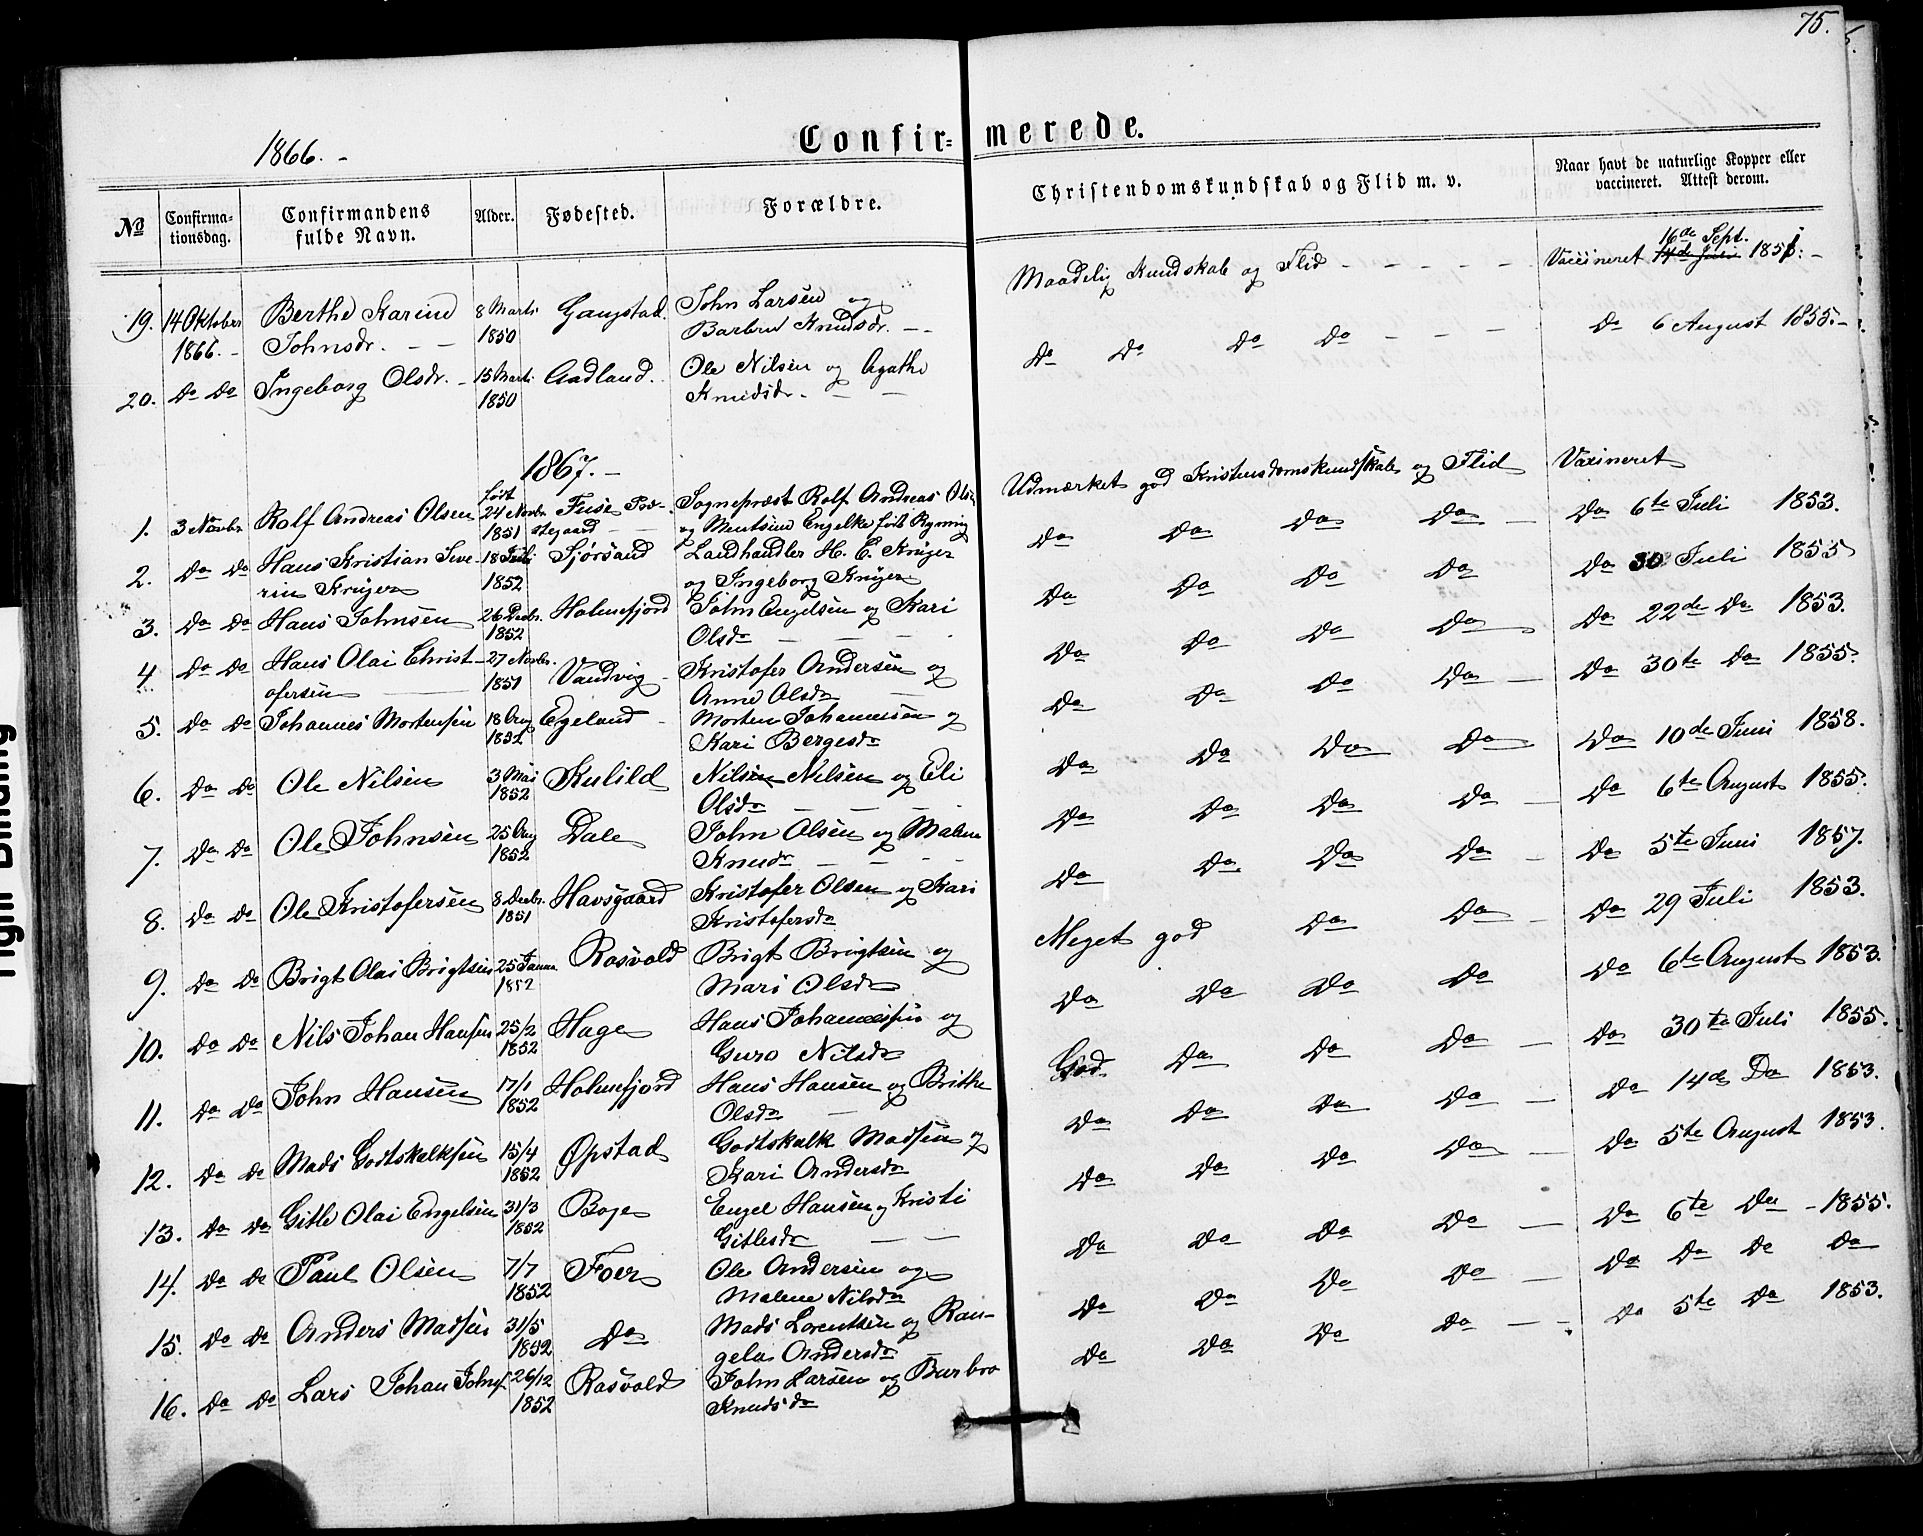 75.
1866. -
Confir= merede.
No
Confirma-
tionsdag.
Confirmandens
fulde Navn.
Alder.
Fødested.
Forældre.
Christendomskundskab og Flid m. v.
Naar havt de naturlige Kopper eller
vaccineret. Attest derom.
19. 14 Oktober Berthe Karine 8 Marts Gangstad. John Larsen og Maadelig Kundskab og Flid - - - - - Vaccineret 16de Sept. 1851. -
1866. - Johnsdr. - - 1850 Barbru Knudsdr. - -
20. Do Do Ingeborg Olsdr. - 15 Marts Aadland. Ole Nilsen og Agathe Do Do Do Do - - - Do 6 August 1855. -
1850 Knudsdr. - -
1867. -
1. 3 Novbr Rolf Andreas Olsen født 24 Novbr. Fuse Præ- Sognepræst Rolf Andreas Olsen Udmærket god Kristendomskundskab og Flid Vaxineret
1851 stegaard og Mentsine Engelke født Rynning Do 6te Juli 1853.
2. Do Do Hans Kristian Seve- 18 Juli Sjørsand Landhandler H. E. Krüger Do Do Do Do - Do 30 Juli 1855
rin Krüger 1852 og Ingeborg Krüger
3. Do Do Hans Johnsen 26 Decbr. Holmefjord John Engelsen og Kari Do Do Do Do Do 22de Do 1853.
1852 Olsdr - - -
4 Do Do Hans Olai Christ- 27 Novbr. Vandvig - Kristofer Andersen og Do Do Do Do Do 30te Do 1855.
ofersen 1851 Anne Olsdr -
5. Do Do Johannes Mortensen 18 Aug Ergeland - Morten Johannessen og Do Do Do Do - Do 10de Juni 1858.
1852 Kari Bergesdr
6. Do Do Ole Nilsen 3 Mai Kulild Nilsen Nilsen og Eli Do Do Do Do Do 6te August 1855.
1852 Olsdr - - -
7. Do Do Ole Johnsen 25 Aug Dale John Olsen og Malene Do Do Do Do - Do 5te Juni 1857.
1852 Knudr - - -
8. Do Do Ole Kristofersen 8 Decbr. Havsgaard Kristofer Olsen og Kari Do Do Do Do - Do 29 Juli 1853.
1851 Kristofersdr
9. Do Do Brigt Olai Brigtsen 25 Janua. Røsvold Brigt Brigtsen og Meget god Do Do - Do 6te August 1853.
1852 Mari Olsdr
10. Do Do Nils Johan Hansen 25/2 Hage Hans Johannessen og Do Do Do Do Do 30te Juli 1855.
1852 Guro Nilsdr
11. Do Do John Hansen 17/1 Holmefjord Hans Hansen og Brithe God. Do Do Do - Do 14de Do 1853.
1852 Olsdr -
12. Do Do Mads Godtskalksen 15/4 Øpstad Godtskalk Madsen og Do Do Do Do - Do 5te August 1853.
1852 Kari Andersdr
13. Do Do Gitle Olai Engelsen 31/3 Boge Engel Hansen og Kristi Do Do Do Do - Do 6te Do - 1855.
1852 Gitlesdr - -
14. Do Do Paul Olsen 7/7 Foer Ole Andersen og Do Do Do Do - Do Do Do Do
1852 Malene Nilsdr
15. Do Do Anders Madsen 31/5 Do Mads Lorentsen og Ran- Do Do Do Do - Do 5te Do 1853.
1852 gela Andersdr
16. Do Do Lars Johan Johns. 26/12 Røsvold John Larsen og Barbro Do Do Do Do - -
1852 Knudsdr